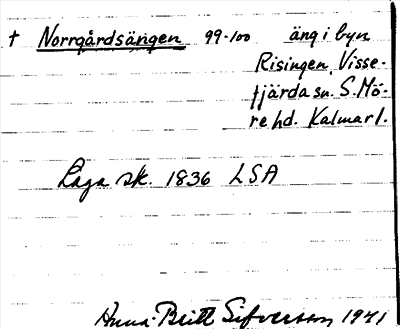 † Norrgårdsängen 99-100 äng i byn
Risingen, Visse-
fjärda sn. S. Mö-
re hd. Kalmar l.
Laga sk. 1836 LSA
Anna-Britt Sifversson 1941